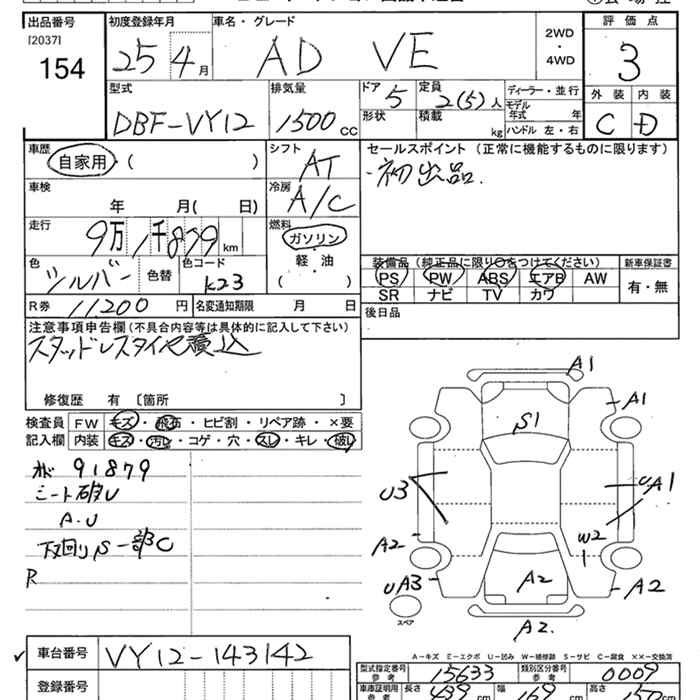 出品番号 初度登録年月 車名・グレード 評価点
[2037]
154 25年4月 AD VE 2WD・4WD 3
型式 排気量 ドア 5 定員 2(5)人 ディーラー・並行 外装 内装
DBF-VY12 1500cc 形状 積載 kg モデル年式 年 C D
ハンドル 左・右
車歴 シフト セールスポイント(正常に機能するものに限ります)
自家用・( ) AT ・初出品.
車検 冷房
年 月( 日) A/C
走行 燃料
9万1千879km ガソリン
色 色替 色コード 軽・油 装備品(純正品に限り○をつけてください) 新車保証書
シルバー k23 ( ) PS PW ABS エアB AW 有・無
SR ナビ TV カワ
R券 11,200円 名変通知期限 月 日 後日品
注意事項申告欄(不具合内容等は具体的に記入して下さい)
スタッドレスタイヤ積込
修復歴 有〔箇所 〕
検査員 FW キズ・飛石・ヒビ割・リペア跡・×要
記入欄 内装 キズ・汚レ・コゲ・穴・スレ・キレ・破レ
91879
シート破レ
A.U
下回りS一部C
R
A1
A1
S1
U3
UA1
W2
A2
UA3
A2
A2
A2
スペア
A-キズ E-エクボ U-凹み W-補修跡 S-サビ C-腐食 XX-交換済
車台番号 VY12-143142
型式指定番号 参考 15633 類別区分番号 参考 0009
登録番号
車庫証明用 参考 長さ 439cm 幅 169cm 高さ 150cm